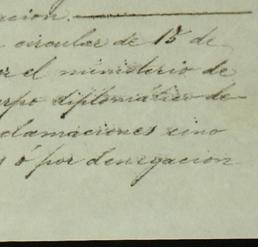 acion.
circular de 15 de
or el ministerio de
erpo diplomático de
clamaciones sino
s ó por denegacion